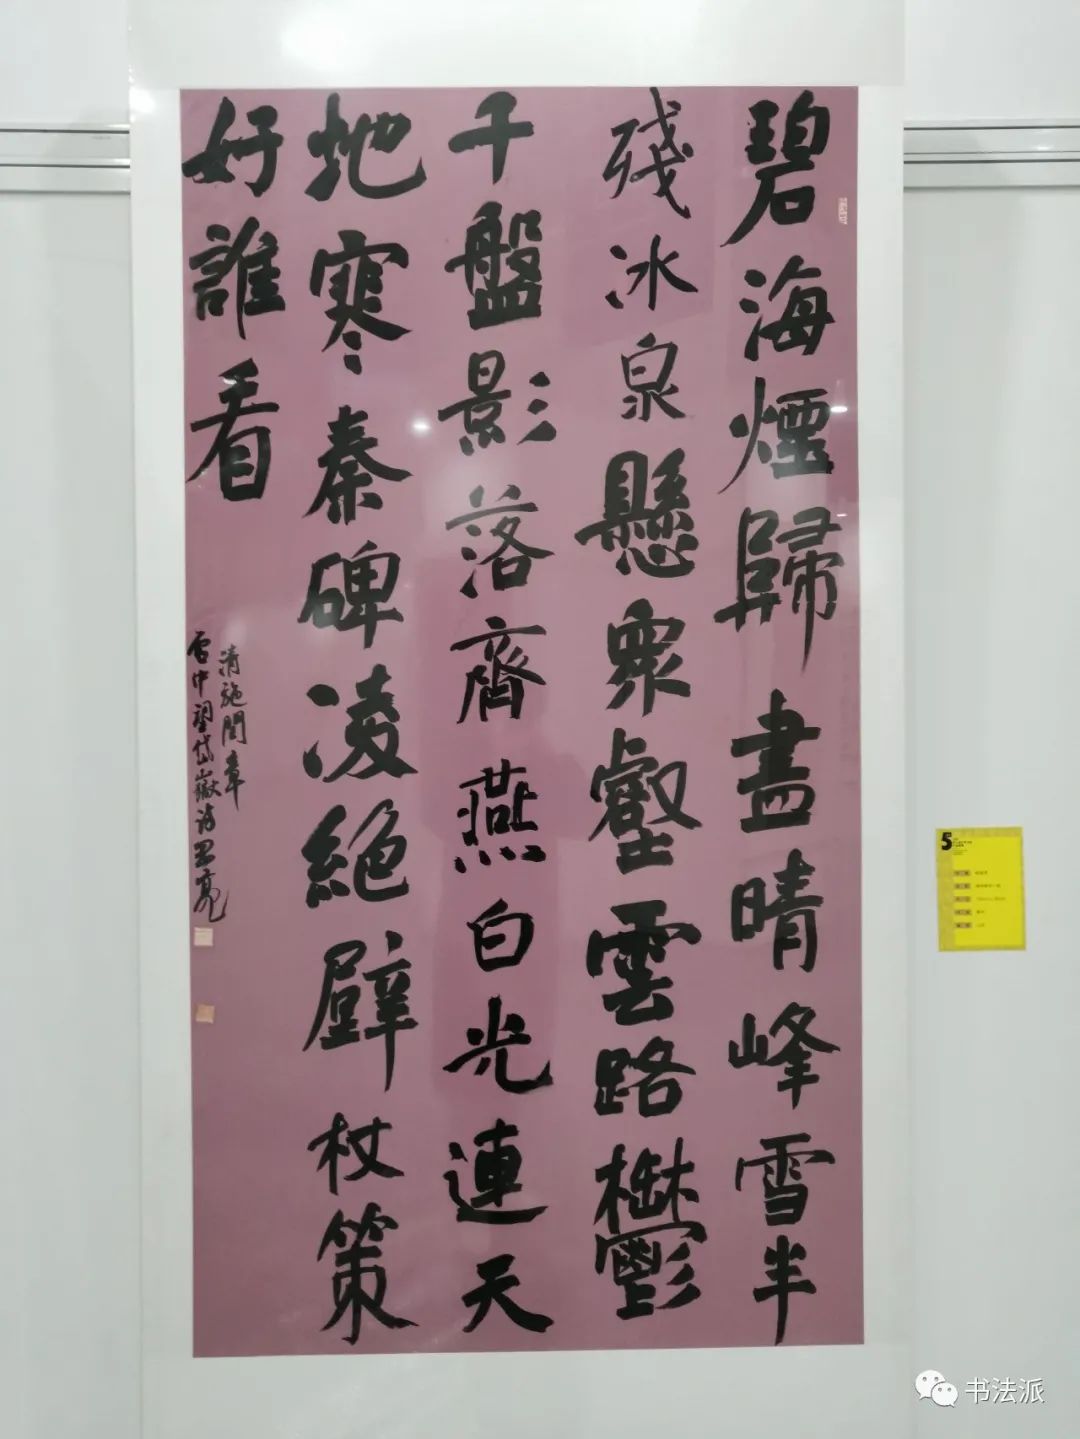 碧海煙歸盡晴峰雪半
殘冰泉懸衆壑雲路鬱
千盤影落齊燕白光連天
地寒秦碑凌絕壁杖策
好誰看
清施閏章
雪中望岱嶽詩
5
书法派